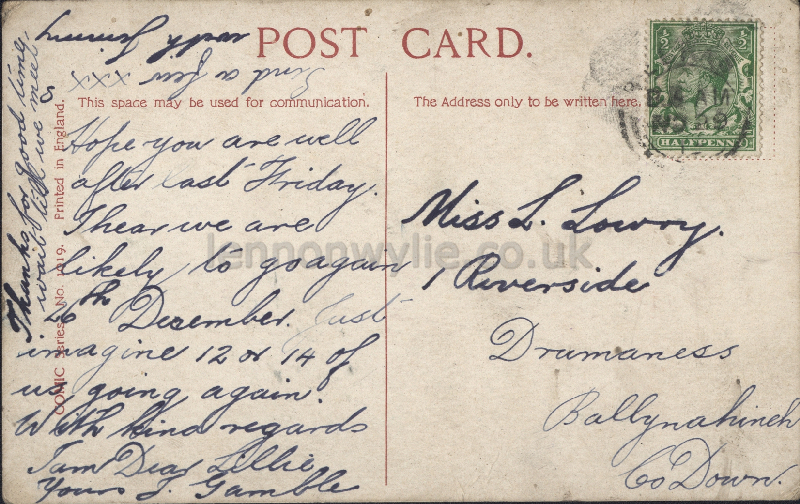 POST CARD.
This space may be used for communication.
The Address only to be written here.
Hope you are well
after last Friday.
I hear we are
likely to go again
26th December. Just
imagine 12 or 14 of
us going again.
With kind regards
I am Dear Lillie
Yours J. Gamble
Thanks for good time
wait till we meet
with Jimmy
Send a few xxx
Miss L. Lowry.
1 Riverside
Drumaness
Ballynahinch
Co Down.
COMIC Series No. 1919. Printed in England.
½ ½
HALFPENNY
8 15 AM
lennonwylie.co.uk